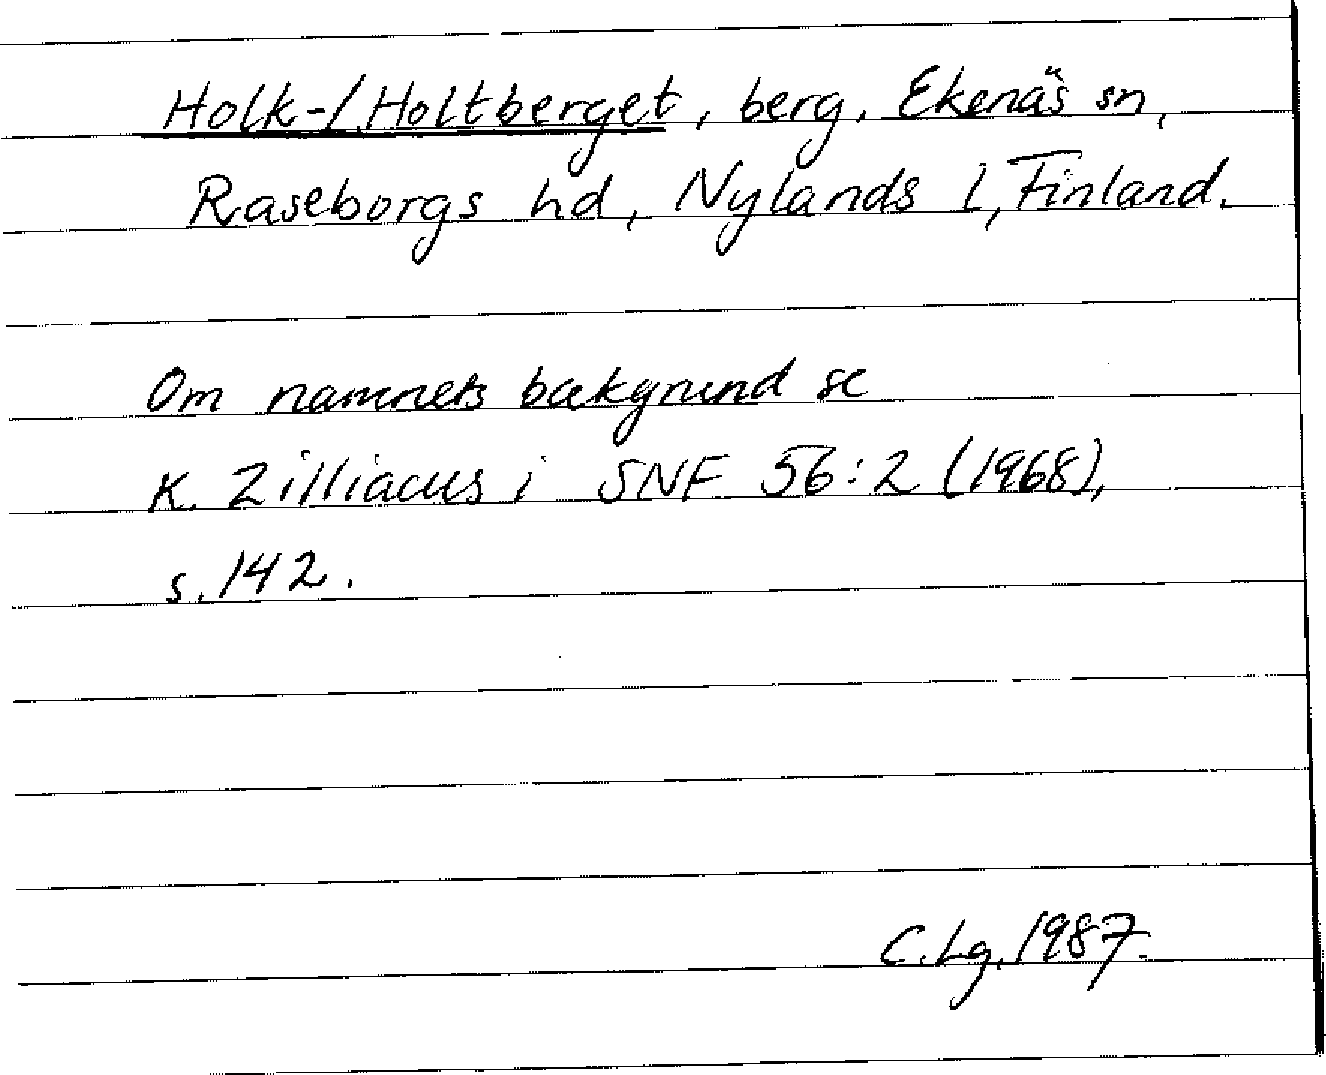 Holk-/Holtberget, berg, Ekenäs sn,
Raseborgs hd, Nylands l, Finland.
Om namnets bakgrund se
K. Zilliacus i SNF 56:2 (1968),
s. 142.
C. Lg. 1987.